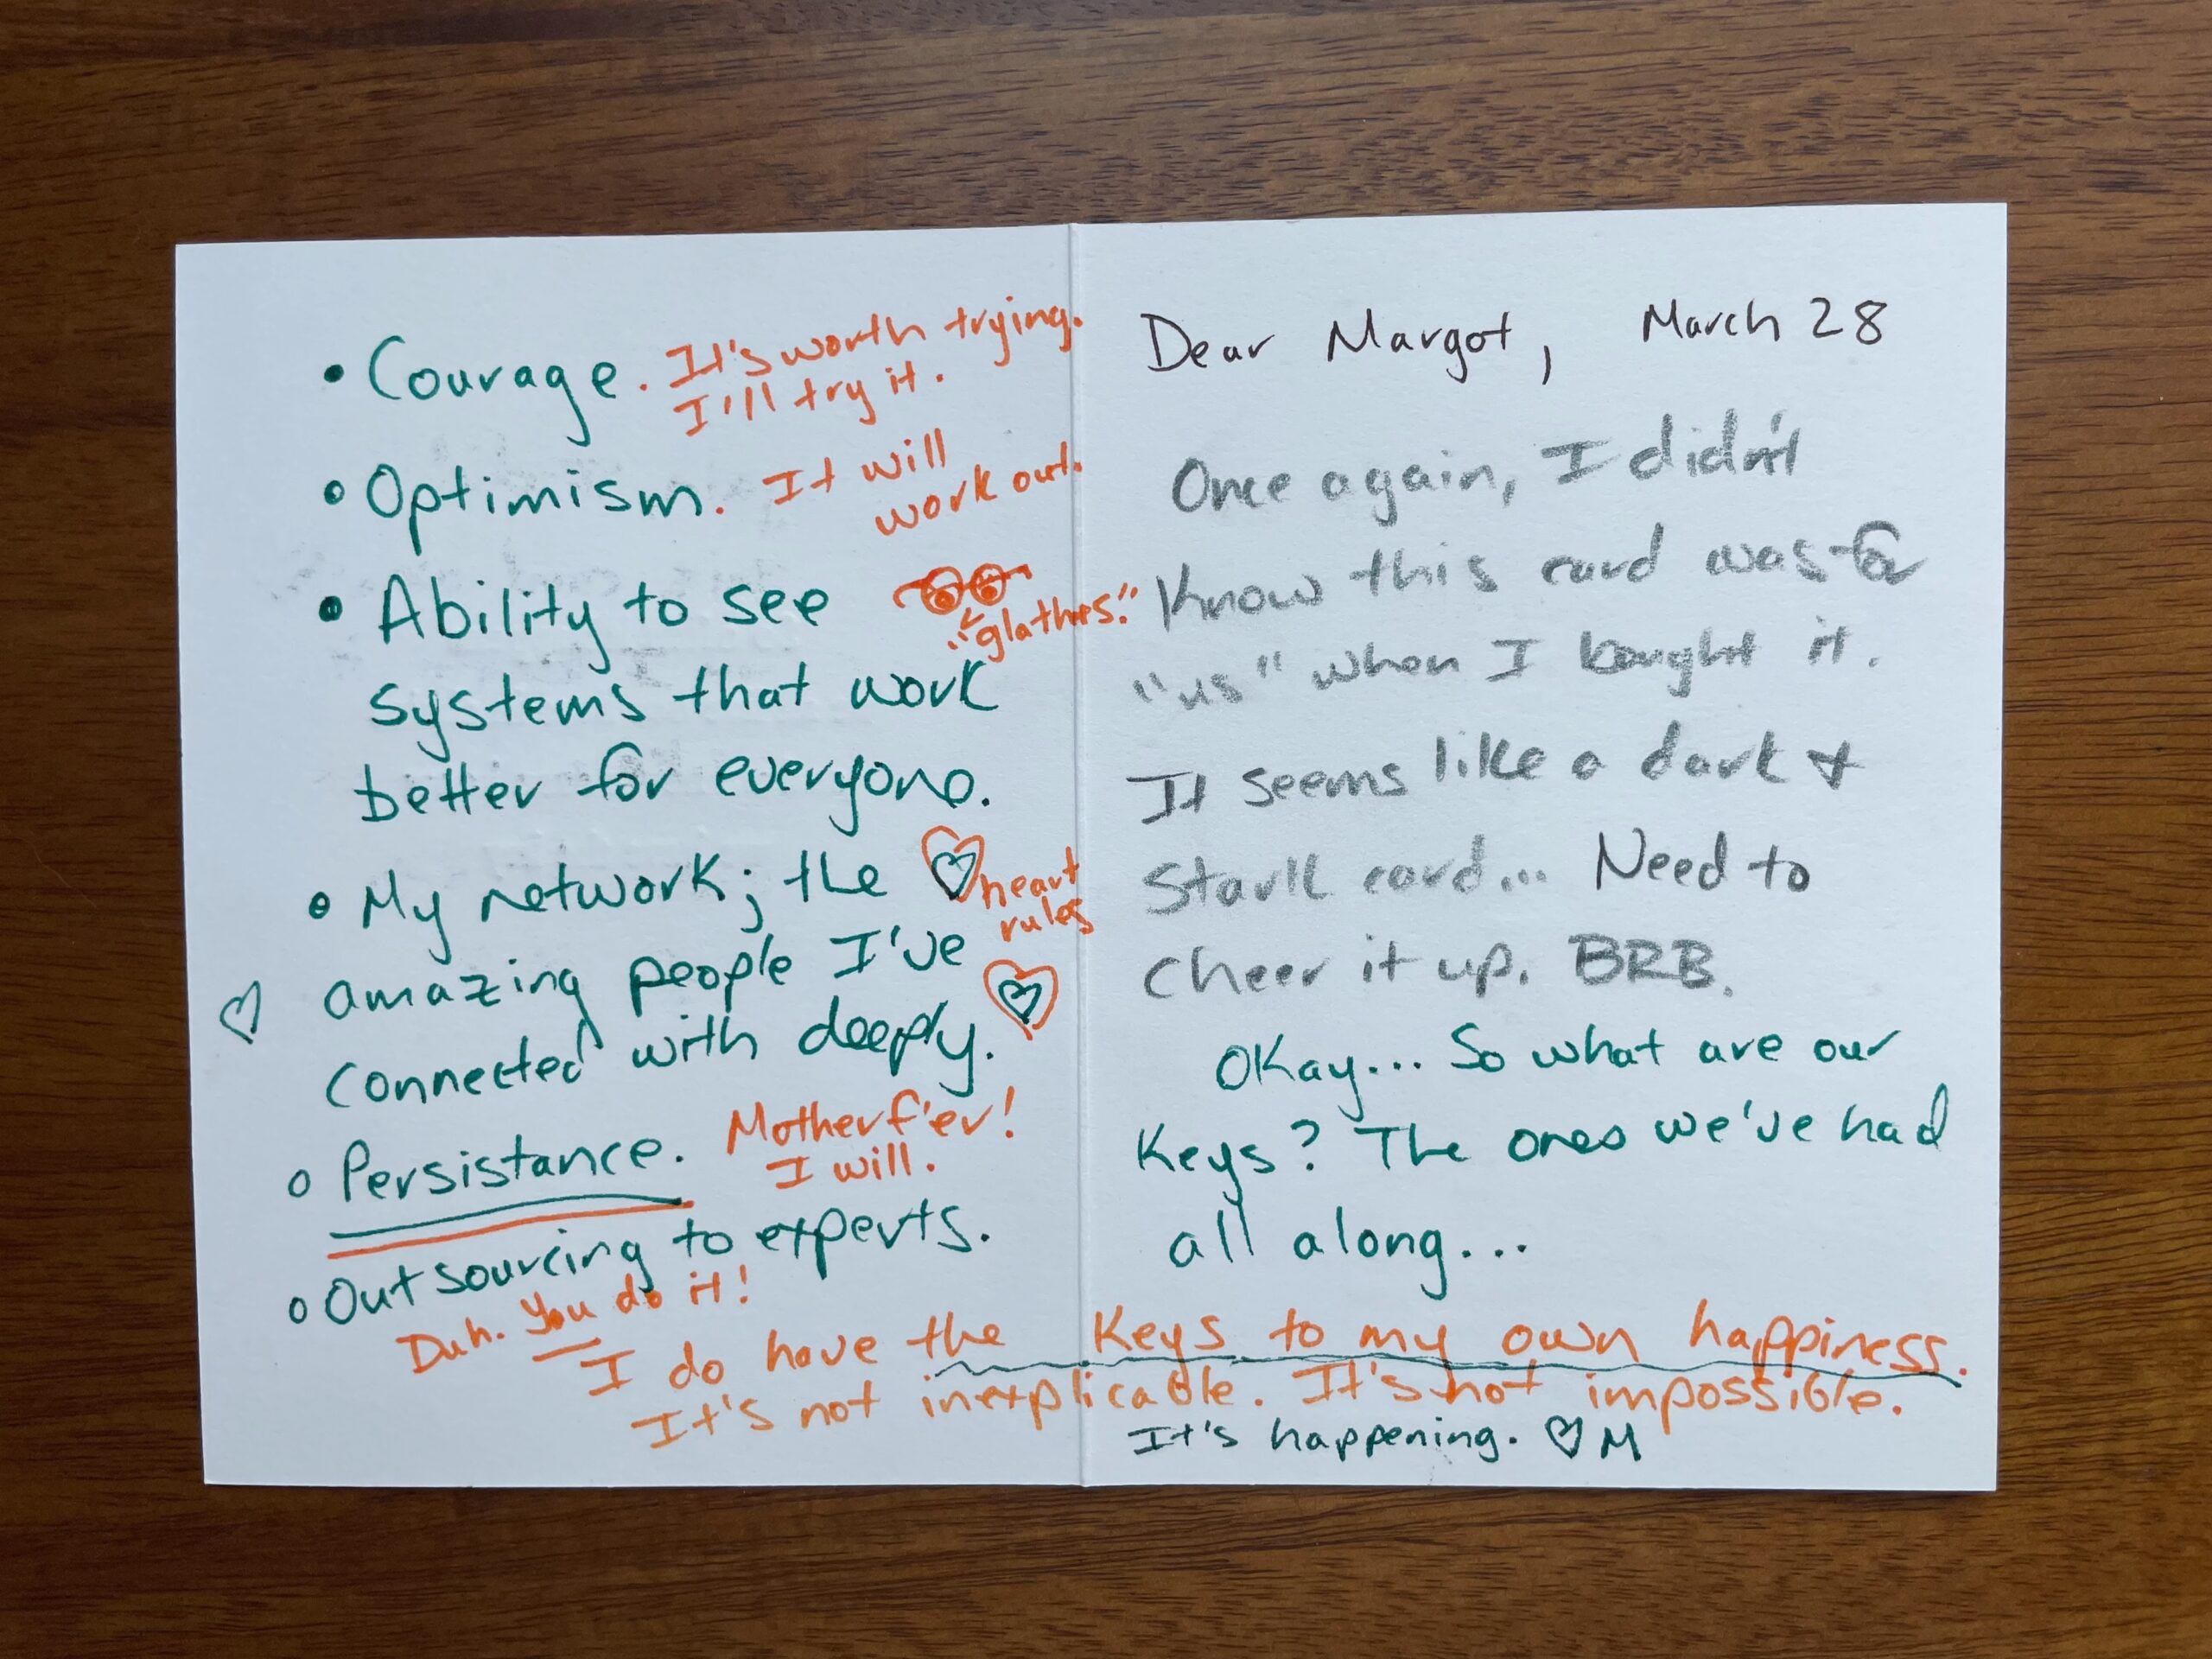 Dear Margot, March 28
Once again, I didn't
know this card was for
"us" when I bought it.
It seems like a dark &
Stark card... Need to
cheer it up. BRB.
Okay... So what are our
Keys? The ones we've had
all along...
• Courage. It's worth trying.
I'll try it.
• Optimism. It will
work out.
• Ability to see
"glathes."
systems that work
better for everyone.
• My network; the ♡ heart
rules
♡ amazing people I've
connected with deeply. ♡
• Persistance. Motherf'er!
I will.
• Outsourcing to experts.
Duh. You do it!
I do have the Keys to my own happiness.
It's not inexplicable. It's not impossible.
It's happening. ♡ M